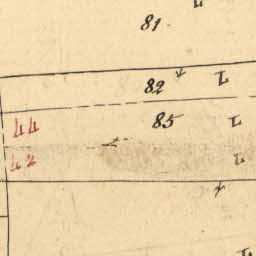 81.
82
85
44
42